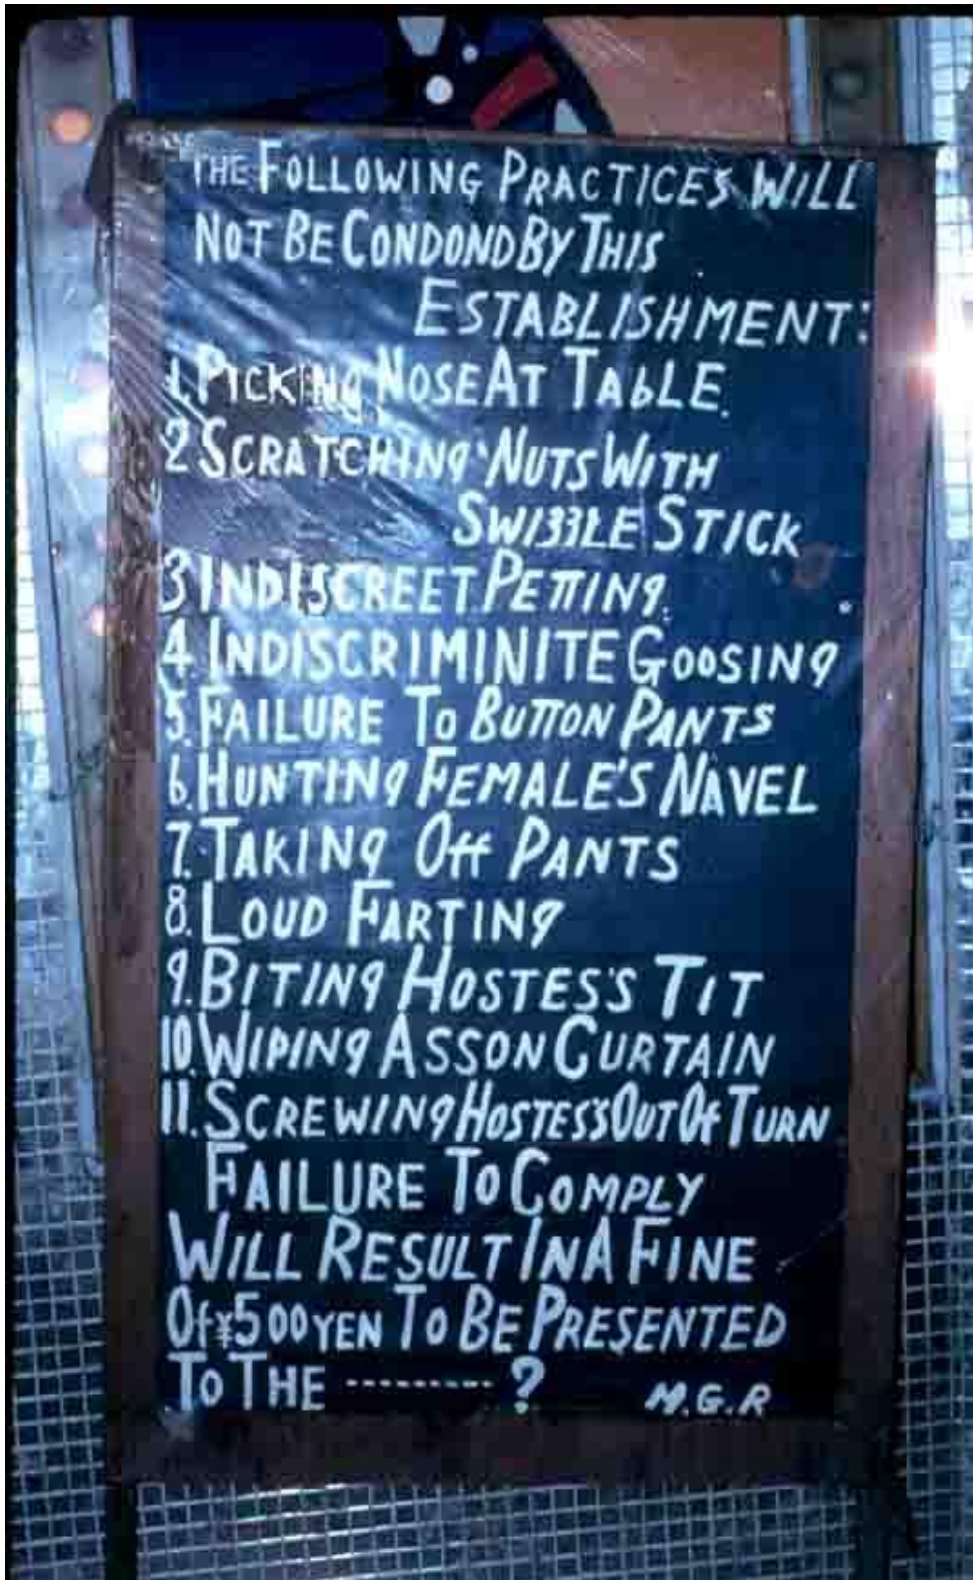 THE FOLLOWING PRACTICES WILL
NOT BE CONDOND BY THIS
ESTABLISHMENT:
1. PICKING NOSE AT TABLE.
2 SCRATCHING NUTS WITH
SWIZZLE STICK
3 INDISCREET PETTING.
4. INDISCRIMINITE GOOSING
5. FAILURE TO BUTTON PANTS
6. HUNTING FEMALE'S NAVEL
7. TAKING Off PANTS
8. LOUD FARTING
9. BITING HOSTESS'S TIT
10. WIPING ASS ON CURTAIN
11. SCREWING HOSTESS'S OUT Of TURN
FAILURE TO COMPLY
WILL RESULT IN A FINE
Of ¥500 YEN TO BE PRESENTED
TO THE ---------- ? M.G.R